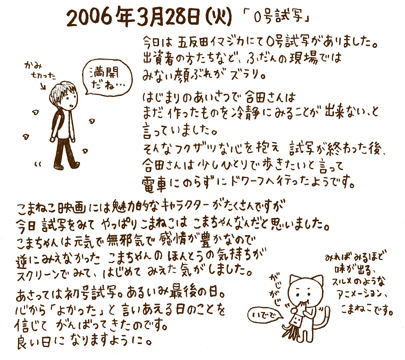 2006年3月28日(火)「0号試写」
今日は五反田イマジカにて0号試写がありました。
出資者の方たちなど、ふだんの現場では
みない顔ぶれがズラリ。
かみ
切った
満開
だね…
はじまりのあいさつで合田さんは
まだ作ったものを冷静にみることが出来ない、と
言っていました。
そんなフクザツな心を抱え 試写が終わった後、
合田さんは少しひとりで歩きたいと言って
電車にのらずにドワーフへ行ったようです。
こまねこ映画には魅力的なキャラクターがたくさんですが
今日試写をみて やっぱりこまねこは こまちゃんなんだと思いました。
こまちゃんは元気で無邪気で感情が豊かなので
逆にみえなかった こまちゃんの ほんとうの気持ちが
スクリーンでみて、はじめて みえた気がしました。
あさっては初号試写。あるいみ最後の日。
心から「よかった」と言いあえる日のことを
信じて がんばってきたのです。
良い日に なりますように。
みればみるほど
味が出る、
スルメのような
アニメーション、
こまねこです。
がじがじ
いでで